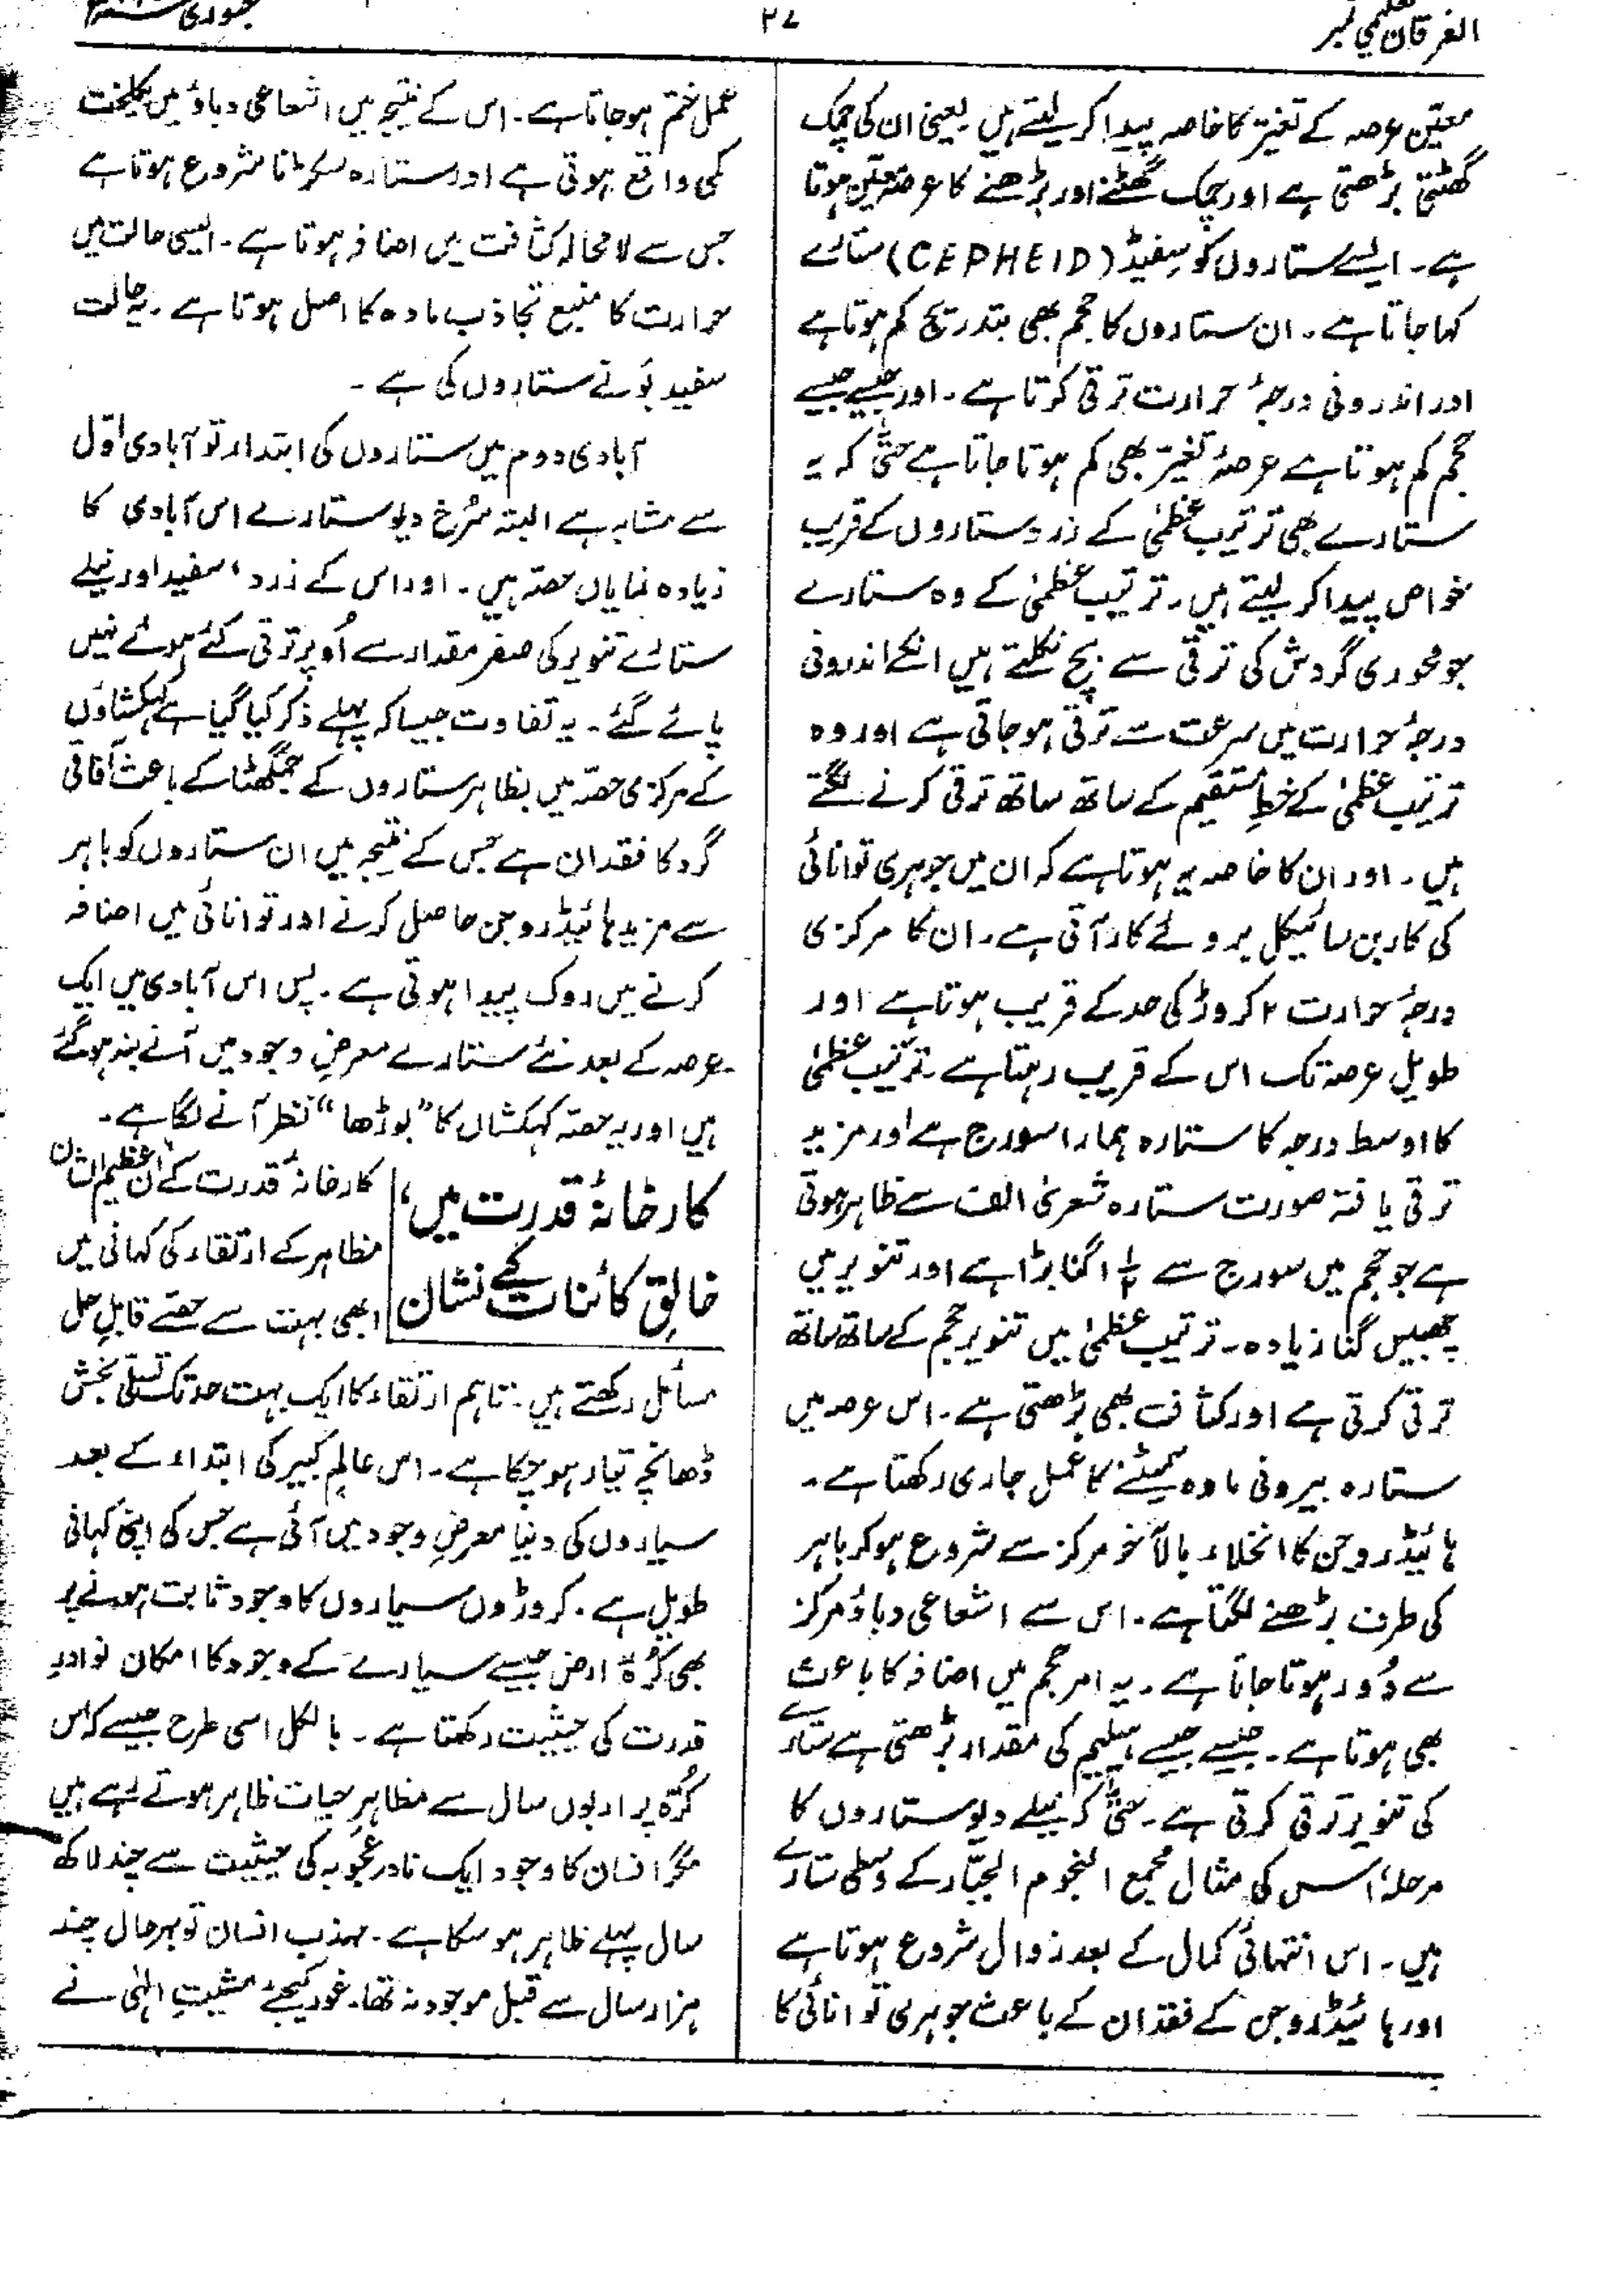 الفرقان تعلیمی نمبر
۲۷
جنوری
معیّن عرصہ کے تغیّر کا خاصہ پیدا کر لیتے ہیں یعنی ان کی چمک
گھٹتی بڑھتی ہے اور چمک گھٹنے اور بڑھنے کا عرصہ معیّن ہوتا
ہے۔ ایسے ستاروں کو سِفیڈ (CEPHEID) ستارے
کہا جاتا ہے۔ ان ستاروں کا حجم بھی بتدریج کم ہوتا ہے
اور اندرونی درجۂ حرارت ترقی کرتا ہے۔ اور جیسے جیسے
حجم کم ہوتا ہے عرصۂ تغیّر بھی کم ہوتا جاتا ہے حتّٰی کہ یہ
ستارے بھی ترتیب عظمیٰ کے زرد ستاروں کے قریب
خواص پیدا کر لیتے ہیں۔ ترتیب عظمیٰ کے وہ ستارے
جو محوری گردش کی ترقی سے بچ نکلتے ہیں انکے اندرونی
درجۂ حرارت میں سرعت سے ترقی ہو جاتی ہے اور وہ
ترتیب عظمیٰ کے خطِ مستقیم کے ساتھ ساتھ ترقی کرنے لگتے
ہیں۔ اور ان کا خاصہ یہ ہوتا ہے کہ ان میں جوہری توانائی
کی کاربن سائیکل بروئے کار آتی ہے۔ ان کا مرکزی
درجۂ حرارت ۲ کروڑ کی حد کے قریب ہوتا ہے اور
طویل عرصہ تک اس کے قریب رہتا ہے۔ ترتیب عظمیٰ
کا اوسط درجہ کا ستارہ ہمارا سورج ہے اور مزید
ترقی یافتہ صورت ستارہ شعریٰ الف سے ظاہر ہوتی
ہے جو حجم میں سورج سے ۱ ۱/۲ گنا بڑا ہے اور تنویر میں
چھبیس گنا زیادہ۔ ترتیب عظمیٰ میں تنویر حجم کے ساتھ ساتھ
ترقی کرتی ہے اور کثافت بھی بڑھتی ہے۔ اس عرصہ میں
ستارہ بیرونی مادہ سمیٹنے کا عمل جاری رکھتا ہے۔
ہائیڈروجن کا انخلاء بالآخر مرکز سے شروع ہو کر باہر
کی طرف بڑھنے لگتا ہے۔ اس سے اشعاعی دباؤ مرکز
سے دُور ہوتا جاتا ہے۔ یہ امر حجم میں اضافہ کا باعث
بھی ہوتا ہے۔ جیسے جیسے ہیلیم کی مقدار بڑھتی ہے ستارے
کی تنویر ترقی کرتی ہے۔ حتّٰی کہ نیلے دیو ستاروں کا
مرحلہ! اس کی مثال مجمع النجوم الجبّار کے وسطی ستارے
ہیں۔ اس انتہائی کمال کے بعد زوال شروع ہوتا ہے
اور ہائیڈروجن کے فقدان کے باعث جوہری توانائی کا
عمل ختم ہو جاتا ہے۔ اس کے نتیجہ میں اشعاعی دباؤ میں یکلخت
کمی واقع ہوتی ہے اور ستارہ سکڑنا شروع ہوتا ہے
جس سے لامحالہ کثافت میں اضافہ ہوتا ہے۔ ایسی حالت میں
حرارت کا منبع تجاذب مادہ کا اصل ہوتا ہے۔ یہ حالت
سفید بَونے ستاروں کی ہے۔
آبادی دوم میں ستاروں کی ابتداء تو آبادی اوّل
سے مشابہ ہے البتہ سُرخ دیو ستارے اس آبادی کا
زیادہ نمایاں حصہ ہیں۔ اور اس کے زرد، سفید اور نیلے
ستارے تنویر کی صفر مقدار سے اُوپر ترقی کئے ہوئے نہیں
پائے گئے۔ یہ تفاوت جیسا کہ پہلے ذکر کیا گیا ہے کہکشاؤں
کے مرکزی حصّہ میں بظاہر ستاروں کے جمگھٹا کے باعث آفاقی
گرد کا فقدان ہے جس کے نتیجہ میں ان ستاروں کو باہر
سے مزید ہائیڈروجن حاصل کرنے اور توانائی میں اضافہ
کرنے میں روک پیدا ہوتی ہے۔ پس اس آبادی میں ایک
عرصہ کے بعد نئے ستارے معرضِ وجود میں آنے بند ہوگئے
ہیں اور یہ حصّہ کہکشاں کا ”بوڑھا“ نظر آنے لگا ہے۔
کارخانۂ قدرت میں،
خالقِ کائنات کے نشان
کارخانۂ قدرت کے ان عظیم الشان
مظاہر کے ارتقاء کی کہانی میں
ابھی بہت سے حصّے قابلِ حل
مسائل رکھتے ہیں۔ تاہم ارتقاء کا ایک بہت حد تک تسلّی بخش
ڈھانچہ تیار ہو چکا ہے۔ اس عالمِ کبیر کی ابتداء کے بعد
سیاروں کی دنیا معرضِ وجود میں آئی ہے جس کی اپنی کہانی
طویل ہے۔ کروڑوں سیاروں کا وجود ثابت ہونے پر
بھی کُرّۂ ارض جیسے سیارے کے وجود کا امکان نوادرِ
قدرت کی حیثیت رکھتا ہے۔ بالکل اسی طرح جیسے کہ اس
کُرّہ پر اربوں سال سے مظاہرِ حیات ظاہر ہوتے رہے ہیں
مگر انسان کا وجود ایک نادر عجوبہ کی حیثیت سے چند لاکھ
سال پہلے ظاہر ہو سکا ہے۔ مہذب انسان تو بہرحال چند
ہزار سال سے قبل موجود نہ تھا۔ غور کیجئے مشیتِ الٰہی نے